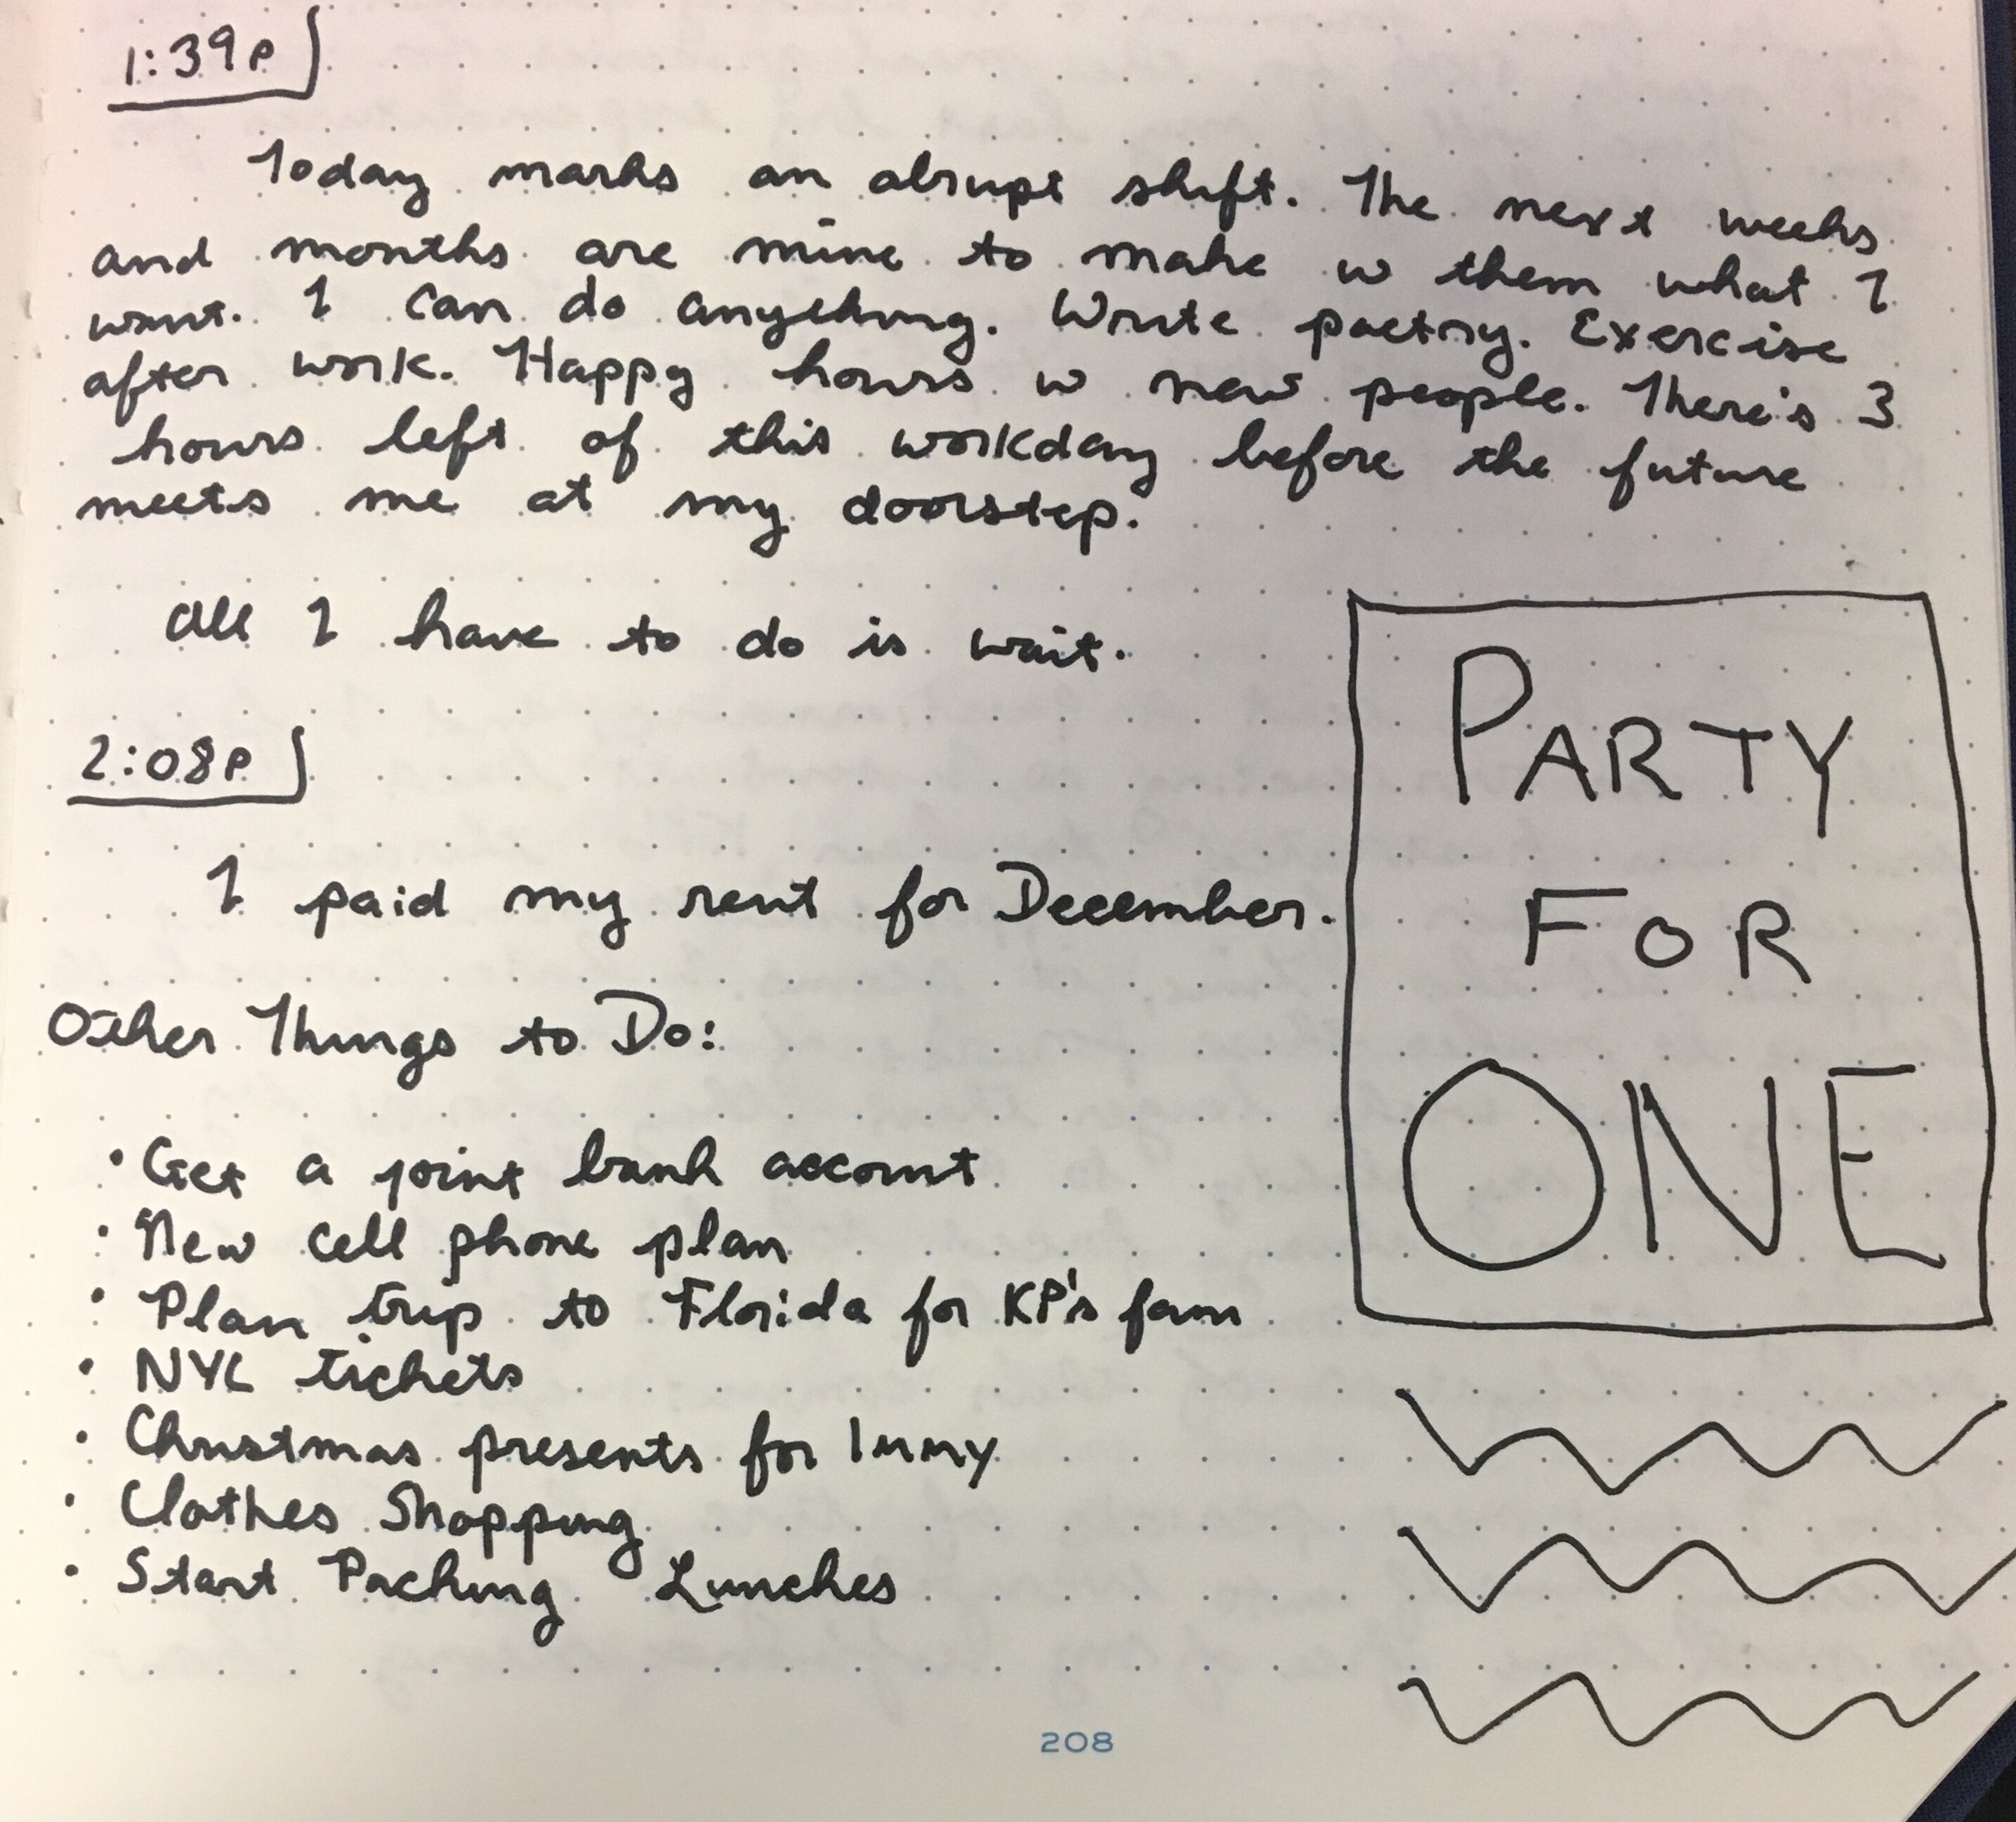 1:39p
Today marks an abrupt shift. The next weeks
and months are mine to make w them what I
want. I can do anything. Write poetry. Exercise
after work. Happy hours w new people. There's 3
hours left of this workday before the future
meets me at my doorstep.
All I have to do is wait.
2:08p
I paid my rent for December.
Other Things to Do:
• Get a joint bank account
• New cell phone plan
• Plan trip to Florida for KP's fam
• NYC tickets
• Christmas presents for Immy
• Clothes Shopping
• Start Packing Lunches
PARTY
FOR
ONE
208